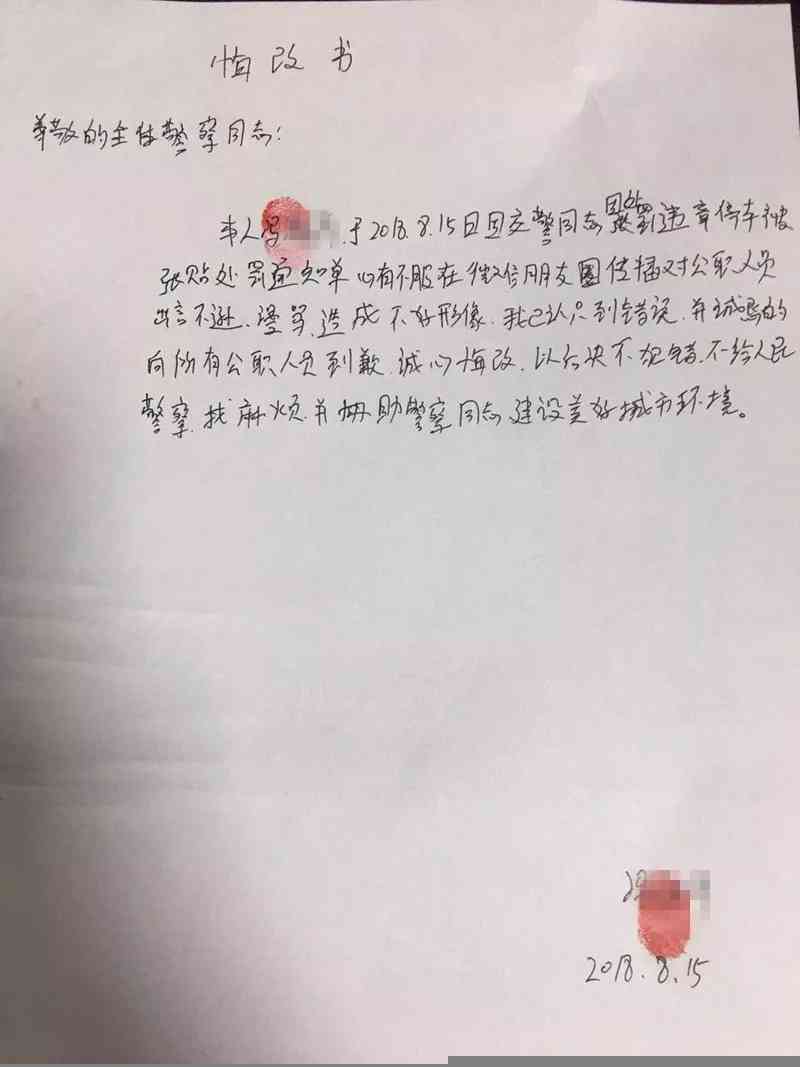 悔改书
尊敬的全体警察同志:
本人 于2018.8.15日因交警同志 处罚违章停车被
张贴处罚通知单心有不服在微信朋友圈传播对公职人员
出言不逊、漫骂、造成不好形像.我已认只到错误.并诚恳的
向所有公职人员到歉.诚心悔改.以后决不犯错.不给人民
警察找麻烦.并帮助警察同志建设美好城市环境。
2018.8.15